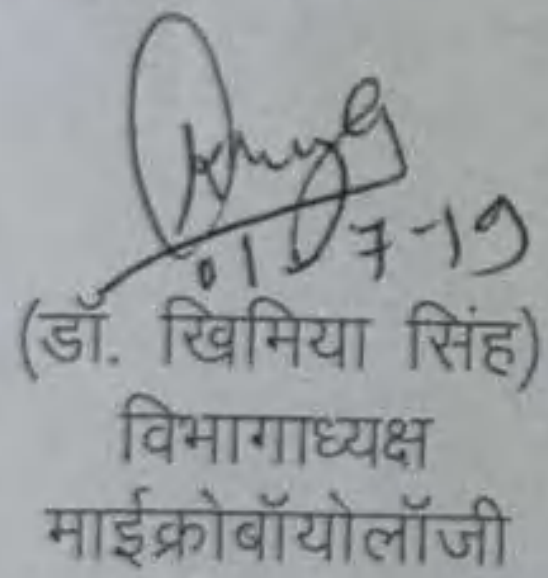 01-7-19
(डॉ. खिमिया सिंह)
विभागाध्यक्ष
माईक्रोबॉयोलॉजी